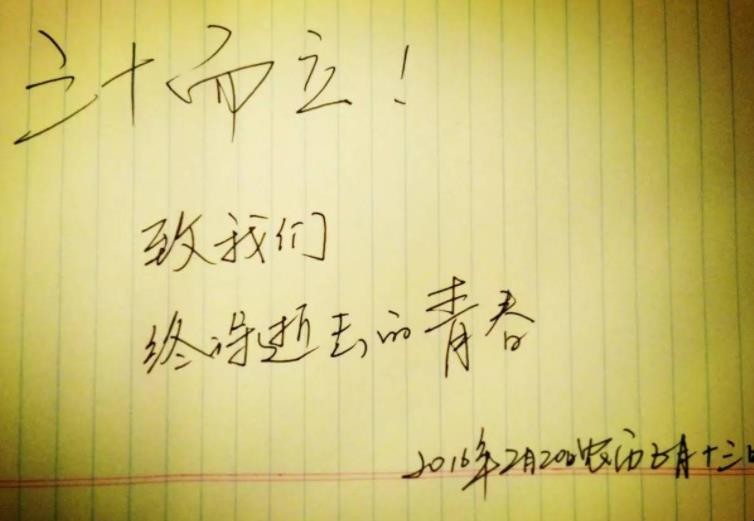 三十而立！
致我们
终得逝去的青春
2016年2月20日农历正月十三日